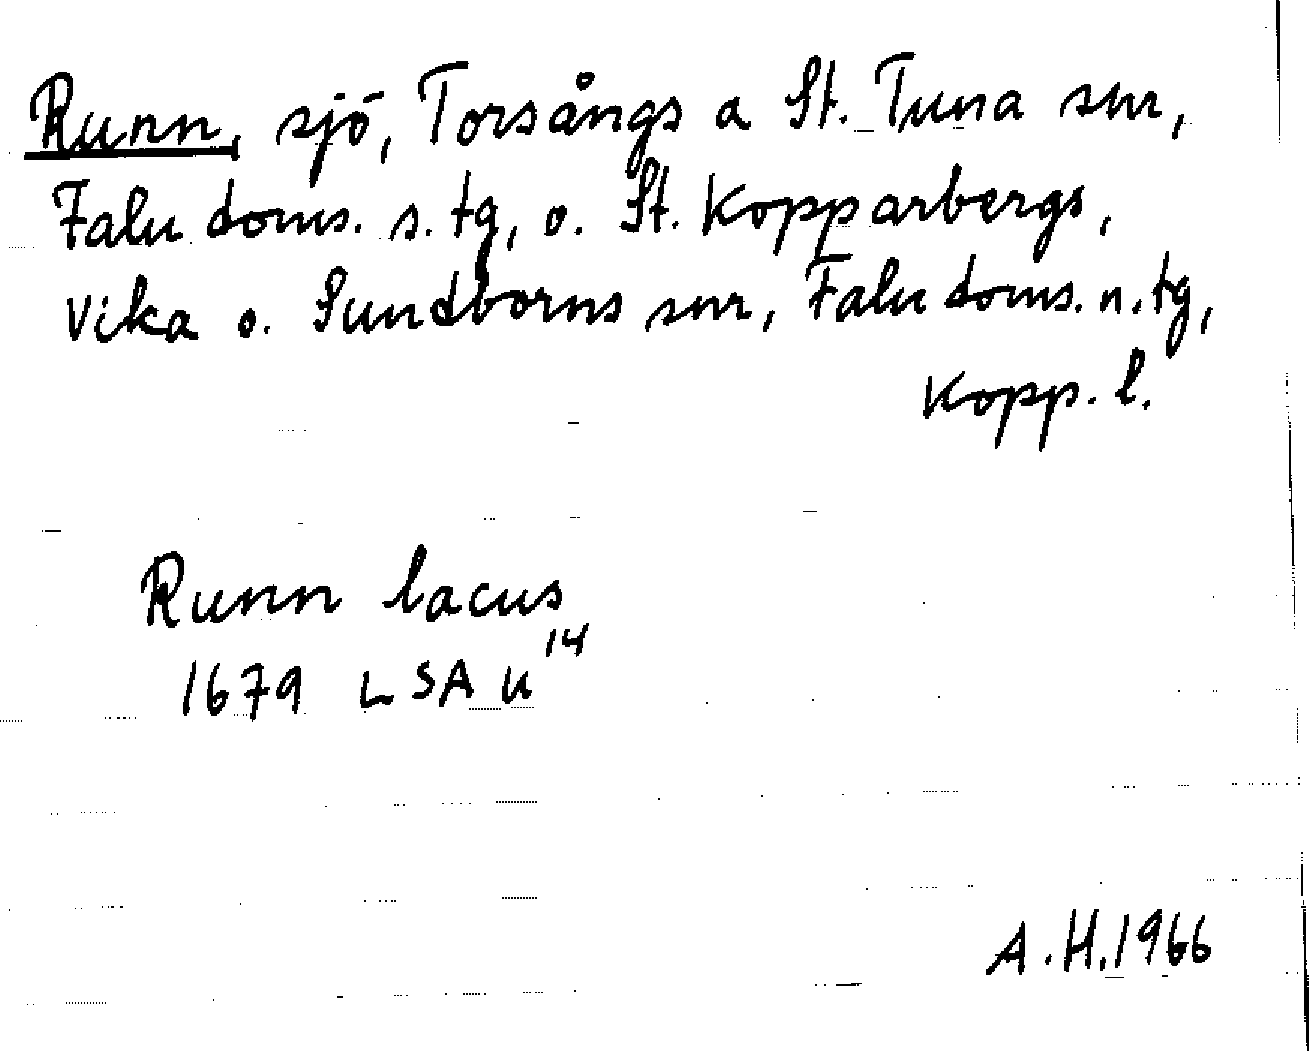 Runn, sjö, Torsångs o St. Tuna snr,
Falu doms. s. tg, o. St. Kopparbergs,
Vika o. Sundborns snr, Falu doms. n. tg,
Kopp. l.
Runn lacus
1679 LSA U 14
A. H. 1966